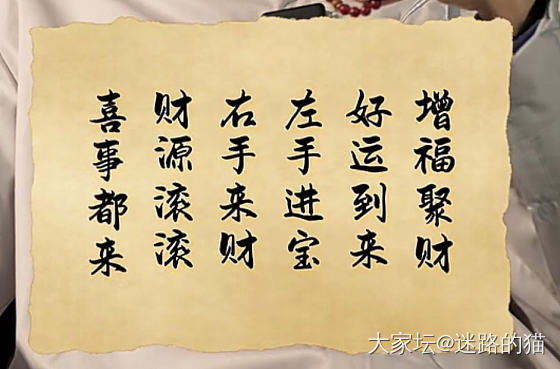 增福聚财
好运到来
左手进宝
右手来财
财源滚滚
喜事都来
大家坛@迷路的猫